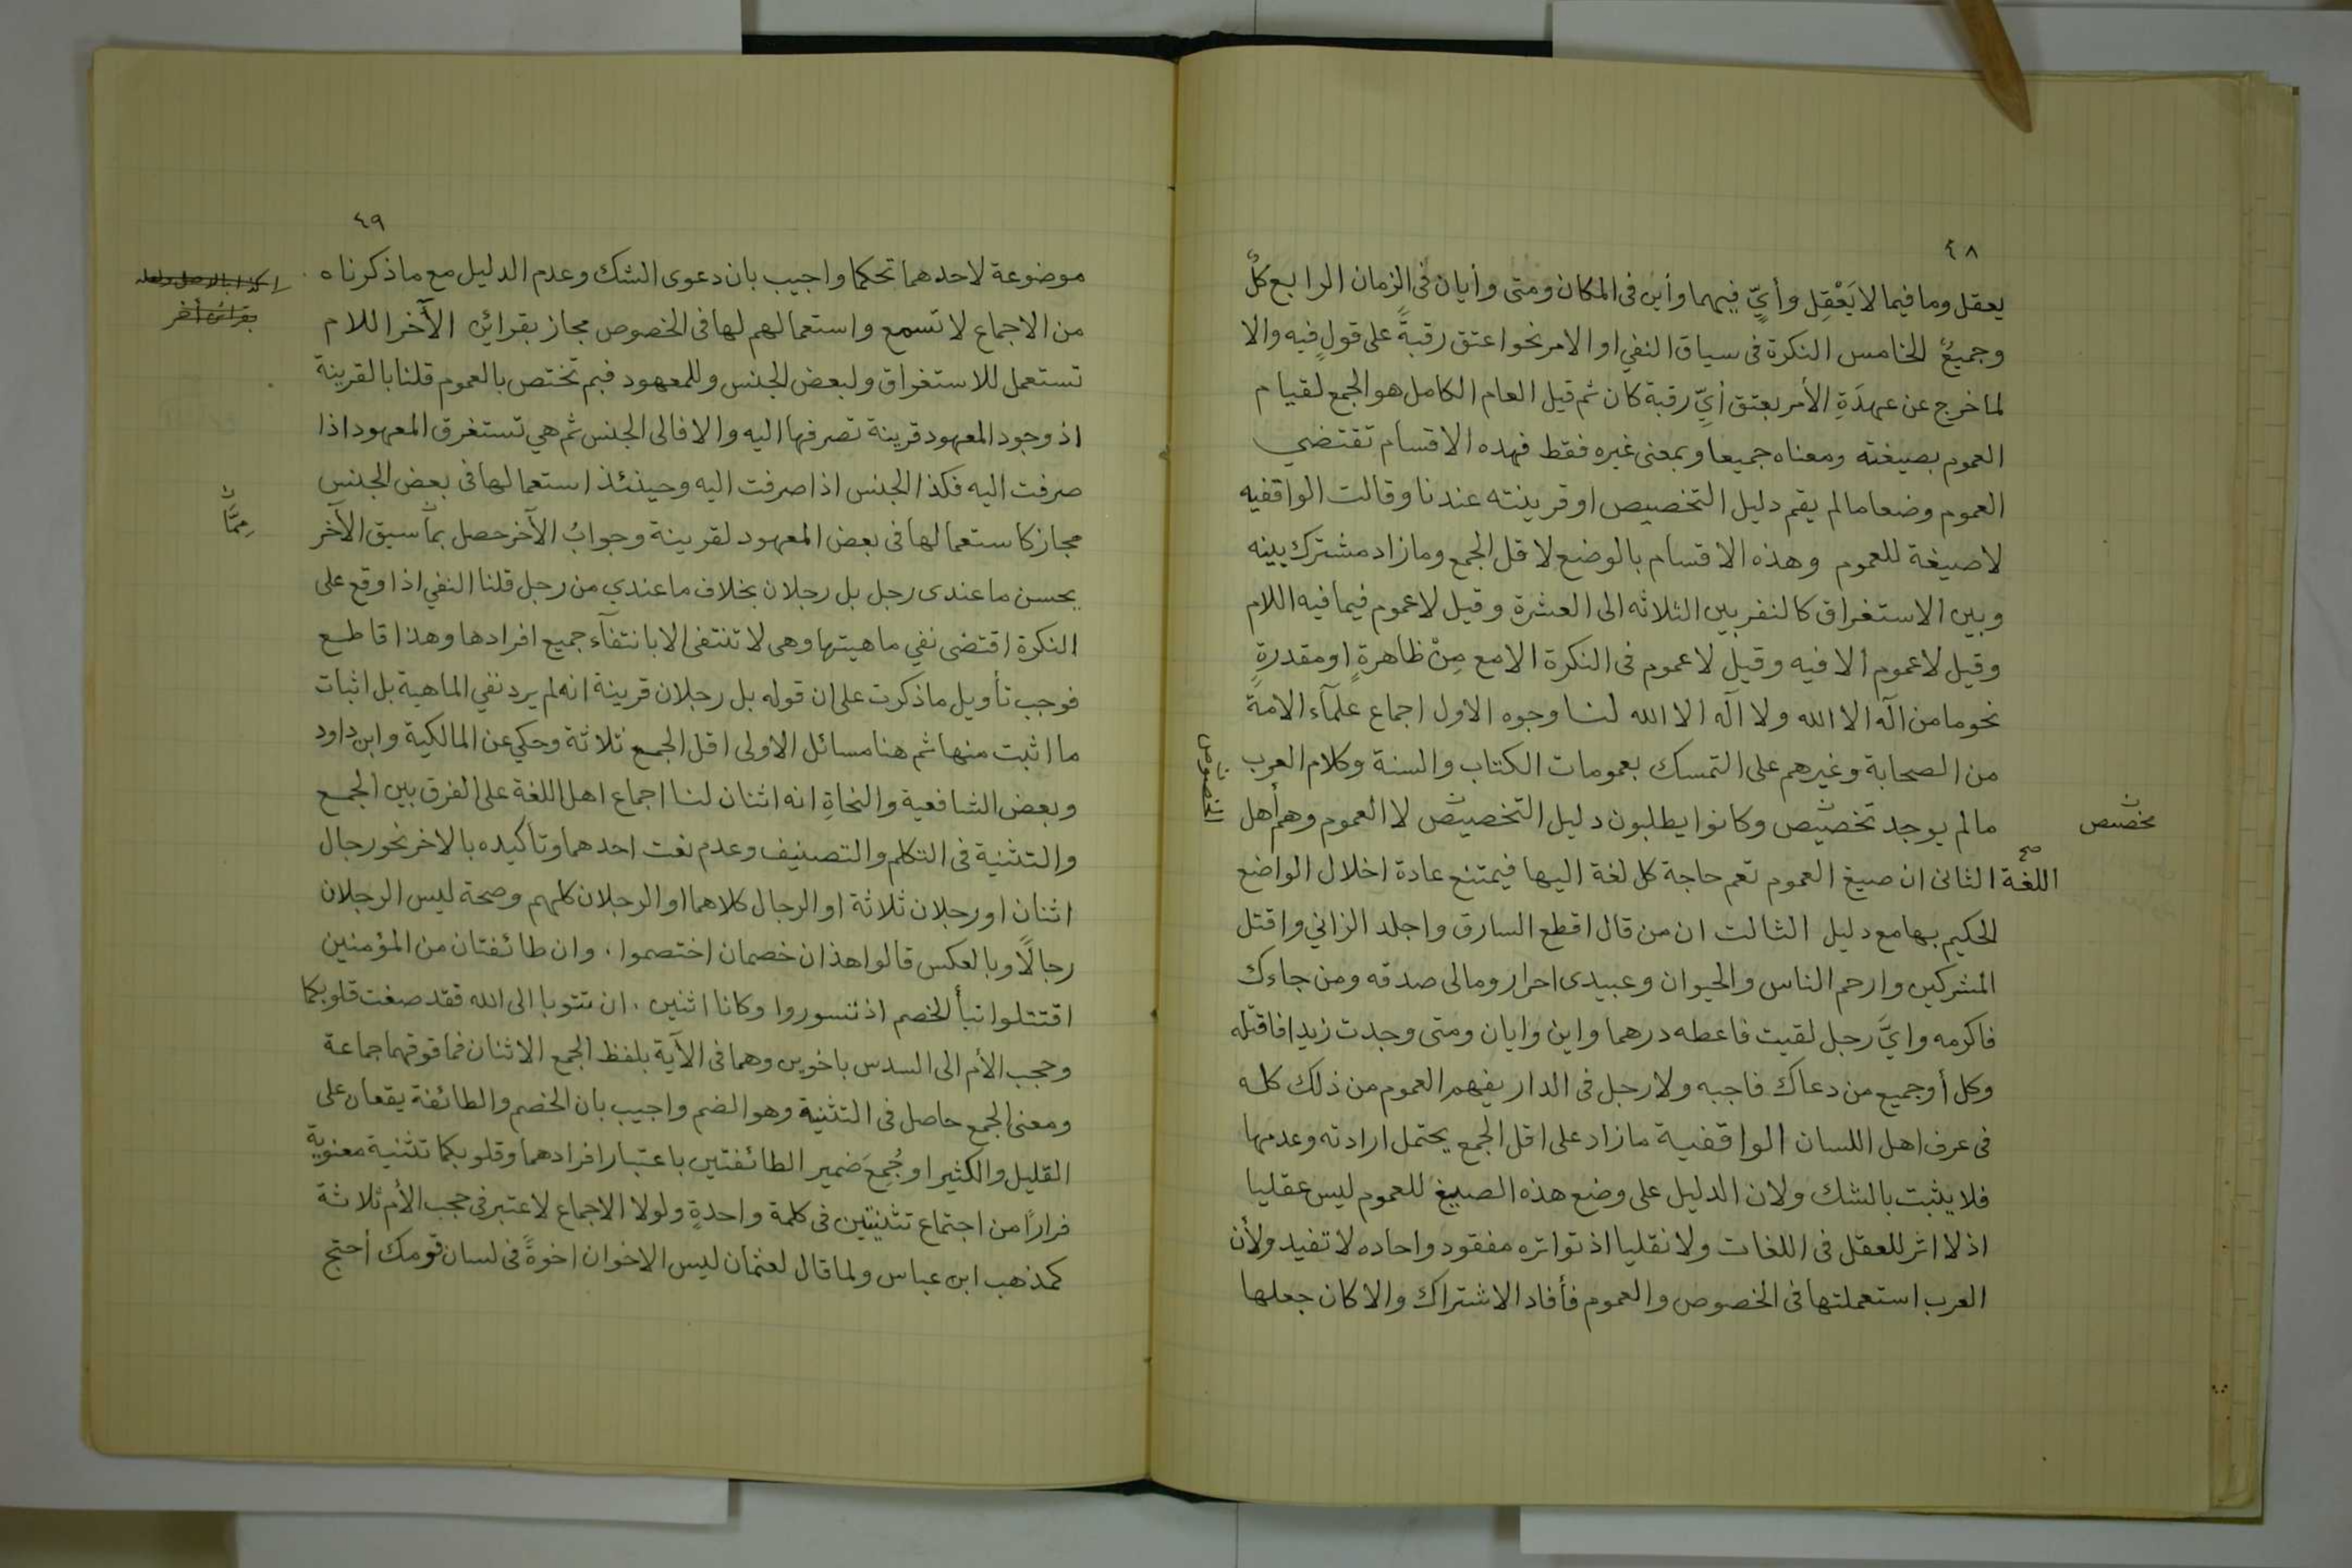 ٤٨
يعقل وما فيما لا يَعْقِل وأيٍّ فيهما وأين في المكان ومتى وأيان في الزمان الرابع كلٌّ
وجميعٌ الخامس النكرة في سياق النفي او الامر نحو اعتق رقبةً على قولٍ فيه والا
لما خرج عن عهدَةِ الأمر بعتق أيِّ رقبة كان ثم قيل العام الكامل هو الجمع لقيام
العموم بصيغته ومعناه جميعا وبمعنى غيره فقط فهده الاقسام تقتضي
العموم وضعا مالم يقم دليل التخصيص او قرينته عندنا وقالت الواقفيه
لا صيغة للعموم وهذه الاقسام بالوضع لاقل الجمع وما زاد مشترك بينه
وبين الاستغراق كالنفر بين الثلاثه الى العشرة وقيل لا عموم فيما فيه اللام
وقيل لا عموم الا فيه وقيل لا عموم فى النكرة الا مع مِنْ ظاهرةٍ او مقدرةٍ
نحو ما من اله الا الله ولا اله الا الله لنا وجوه الاول اجماع علمآء الامة
من الصحابة وغيرهم على التمسك بعمومات الكتاب والسنة وكلام العرب
مالم يوجد تخصيص وكانوا يطلبون دليل التخصيص لا العموم وهم أهل
مخصص
الخصوص
اللغة الثانى ان صيغ العموم تعم حاجة كل لغة اليها فيمتنع عادة اخلال الواضع
صح
الحكيم بها مع دليل الثالت ان من قال اقطع السارق واجلد الزاني واقتل
المشركين وارحم الناس والحيوان وعبيدى احرار ومالى صدقه ومن جاءك
فاكرمه وايَّ رجل لقيت فاعطه درهما واين وايان ومتى وجدت زيدا فاقتله
وكل أو جميع من دعاك فاجبه ولا رجل فى الدار يفهم العموم من ذلك كله
فى عرف اهل اللسان الواقفية مازاد على اقل الجمع يحتمل ارادته وعدمها
فلا يثبت بالشك ولان الدليل على وضع هذه الصيغ للعموم ليس عقليا
اذ لا اثر للعقل فى اللغات ولا نقليا اذ تواتره مفقود واحاده لا تفيد ولأن
العرب استعملتها فى الخصوص والعموم فأفاد الاشتراك والا كان جعلها
٤٩
موضوعة لاحدهما تحكما واجيب بان دعوى الشك وعدم الدليل مع ما ذكرناه
من الاجماع لا تسمع واستعمالهم لها فى الخصوص مجاز بقرائن الآخر اللام
بقرائن أخر
تستعمل للاستغراق ولبعض الجنس وللمعهود فبم تختص بالعموم قلنا بالقرينة
اذ وجود المعهود قرينة تصرفها اليه والا فالى الجنس ثم هي تستغرق المعهود اذا
صرفت اليه فكذا الجنس اذا صرفت اليه وحينئذ استعمالها فى بعض الجنس
مجاز كاستعمالها فى بعض المعهود لقرينة وجوابُ الآخر حصل بما سبق الآخر
مِمَّا
يحسن ما عندى رجل بل رجلان بخلاف ما عندي من رجل قلنا النفي اذا وقع على
النكرة اقتضى نفي ماهيتها وهى لا تنتفى الا بانتفآء جميع افرادها وهذا قاطع
فوجب تأويل ما ذكرت على ان قوله بل رجلان قرينة انه لم يرد نفي الماهية بل اثبات
ما اثبت منها ثم هنا مسائل الاولى اقل الجمع ثلاثة وحكي عن المالكية وابن داود
وبعض الشافعية والنحاةِ انه اثنان لنا اجماع اهل اللغة على الفرق بين الجمع
والتثنية فى التكلم والتصنيف وعدم نعت احدهما وتأكيده بالاخر نحو رجال
اثنان او رجلان ثلاثة او الرجال كلاهما او الرجلان كلهم وصحة ليس الرجلان
رجالًا وبالعكس قالوا هذان خصمان اختصموا ، وان طائفتان من المؤمنين
اقتتلوا نبأ الخصم اذ تسوروا وكانا اثنين ، ان تتوبا الى الله فقد صغت قلوبكما
وحجب الأم الى السدس باخوين وهما فى الآية بلفظ الجمع الاثنان فما فوقهما جماعة
ومعنى الجمع حاصل فى التثنية وهو الضم واجيب بان الخصم والطائفة يقعان على
القليل والكثير او جُمِعَ ضمير الطائفتين باعتبار افرادهما وقلوبكما تثنية معنوية
فرارًا من اجتماع تثنيتين فى كلمة واحدةٍ ولولا الاجماع لاعتبر فى حجب الأم ثلاثة
كمذهب ابن عباس ولما قال لعثمان ليس الاخوان اخوةً فى لسان قومك أحتج